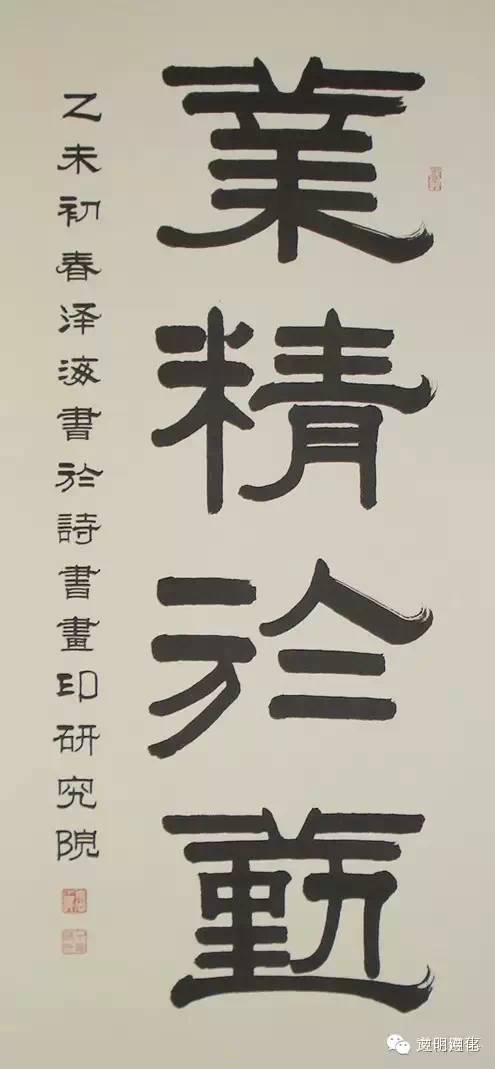 業精於勤
乙未初春泽海書於詩書畫印研究院